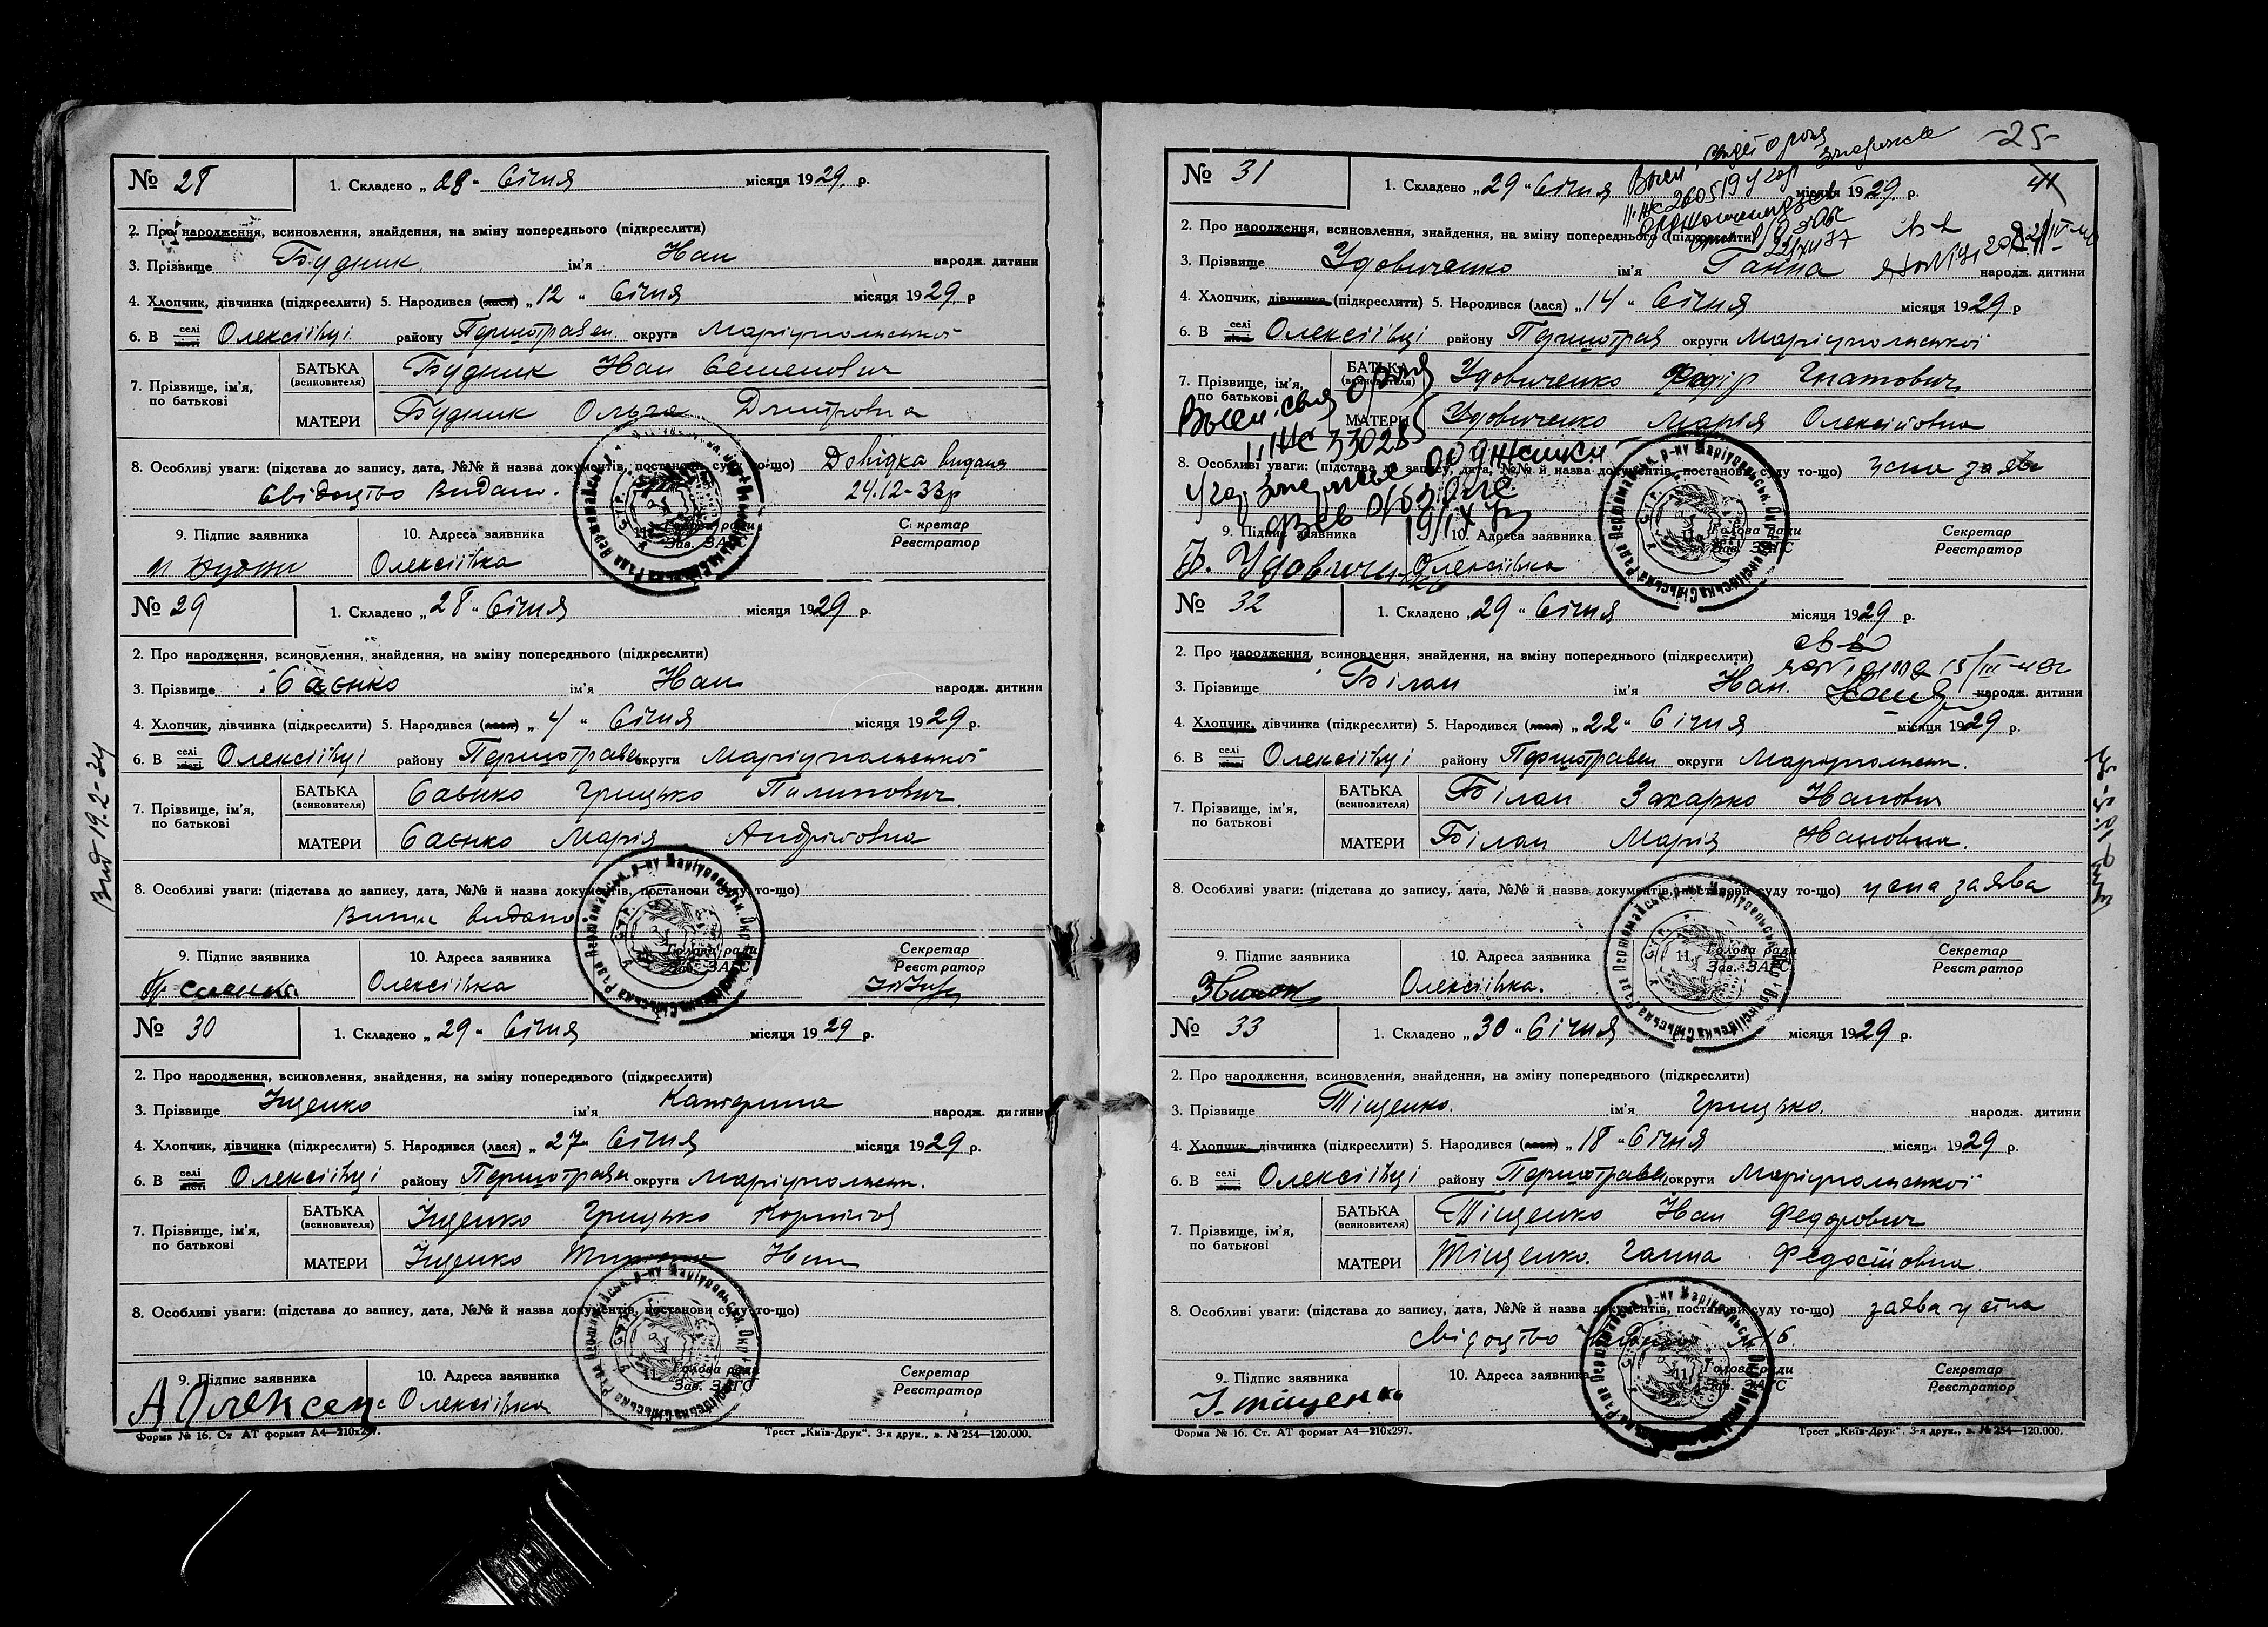 № 28
1. Складено „ 28 “ Січня місяця 1929. р.
2. Про народження, всиновлення, знайдення, на зміну попереднього (підкреслити)
3. Прізвище Будник ім'я Іван народж. дитини
4. Хлопчик, дівчинка (підкреслити) 5. Народився (лася) „ 12 “ Січня місяця 1929. р
6. В селі місті Олексіївці району Першотравен. округи Маріупольської
7. Прізвище, ім'я, по батькові
БАТЬКА (всиновителя) Будник Іван Семенович
МАТЕРИ Будник Ольга Дмитровна
8. Особливі уваги: (підстава до запису, дата, №№ й назва документів, постанови суду то-що) Довідка видана
Свідоцтво видано. 24.12-33р
9. Підпис заявника 10. Адреса заявника 11. Голова ради Зав. ЗАГС Секретар Реєстратор
Олексіївка
№ 29
1. Складено „ 28 “ Січня місяця 1929 р.
2. Про народження, всиновлення, знайдення, на зміну попереднього (підкреслити)
3. Прізвище Саєнко ім'я Іван народж. дитини
4. Хлопчик, дівчинка (підкреслити) 5. Народився (лася) „ 4 “ Січня місяця 1929 р.
6. В селі місті Олексіївці району Першотравен округи Маріупольської
7. Прізвище, ім'я, по батькові
БАТЬКА (всиновителя) Саєнко Грицько Пилипович.
МАТЕРИ Саєнко Марія Андріївна
8. Особливі уваги: (підстава до запису, дата, №№ й назва документів, постанови суду то-що)
видано
9. Підпис заявника 10. Адреса заявника 11. Голова ради Зав. ЗАГС Секретар Реєстратор
Олексіївка
19.2-34
№ 30
1. Складено „ 29 “ Січня місяця 1929 р.
2. Про народження, всиновлення, знайдення, на зміну попереднього (підкреслити)
3. Прізвище Іщенко ім'я Катерина народж. дитини
4. Хлопчик, дівчинка (підкреслити) 5. Народився (лася) „ 27 “ Січня місяця 1929 р.
6. В селі місті Олексіївці району Першотравен округи Маріупольськ.
7. Прізвище, ім'я, по батькові
БАТЬКА (всиновителя) Іщенко Грицько
МАТЕРИ Іщенко Іван
8. Особливі уваги: (підстава до запису, дата, №№ й назва документів, постанови суду то-що)
9. Підпис заявника 10. Адреса заявника 11. Голова ради Зав. ЗАГС Секретар Реєстратор
Олексіївка
Форма № 16. Ст АТ формат А4—210х297. Трест „Київ-Друк“. 3-я друк., в. № 254—120.000.
-25-
41
№ 31
1. Складено „ 29 “ Січня місяця 1929. р.
2. Про народження, всиновлення, знайдення, на зміну попереднього (підкреслити)
3. Прізвище Удовиченко ім'я Ганна народж. дитини
4. Хлопчик, дівчинка (підкреслити) 5. Народився (лася) „ 14 “ Січня місяця 1929 р
6. В селі місті Олексіївці району Першотрав округи Маріупольської
7. Прізвище, ім'я, по батькові
БАТЬКА (всиновителя) Удовиченко Федір Гнатович
МАТЕРИ Удовиченко Марія Олексіївна
8. Особливі уваги: (підстава до запису, дата, №№ й назва документів, постанови суду то-що) усна заява
9. Підпис заявника 10. Адреса заявника 11. Голова ради Зав. ЗАГС Секретар Реєстратор
Олексіївка
№ 32
1. Складено „ 29 “ Січня місяця 1929 р.
2. Про народження, всиновлення, знайдення, на зміну попереднього (підкреслити)
3. Прізвище Білан ім'я Іван. народж. дитини
4. Хлопчик, дівчинка (підкреслити) 5. Народився (лася) „ 22 “ Січня місяця 1929 р.
6. В селі місті Олексіївці району Першотравен округи Маріупольськ.
7. Прізвище, ім'я, по батькові
БАТЬКА (всиновителя) Білан Захарко Іванович
МАТЕРИ Білан Марія Івановна.
8. Особливі уваги: (підстава до запису, дата, №№ й назва документів, постанови суду то-що) усна заява
9. Підпис заявника 10. Адреса заявника 11. Голова ради Зав. ЗАГС Секретар Реєстратор
Олексіївка.
№ 33
1. Складено „ 30 “ Січня місяця 1929 р.
2. Про народження, всиновлення, знайдення, на зміну попереднього (підкреслити)
3. Прізвище Тіщенко. ім'я Грицько. народж. дитини
4. Хлопчик, дівчинка (підкреслити) 5. Народився (лася) „ 18 “ Січня місяця 1929 р.
6. В селі місті Олексіївці району Першотравен. округи Маріупольської
7. Прізвище, ім'я, по батькові
БАТЬКА (всиновителя) Тіщенко Іван Федорович
МАТЕРИ Тіщенко. Ганна Федосіївна.
8. Особливі уваги: (підстава до запису, дата, №№ й назва документів, постанови суду то-що) заява усна
свідоцтво
9. Підпис заявника 10. Адреса заявника 11. Голова ради Зав. ЗАГС Секретар Реєстратор
І. Тіщенко
Форма № 16. Ст. АТ формат А4—210х297. Трест „Київ-Друк“. 3-я друк., в. № 254—120.000.